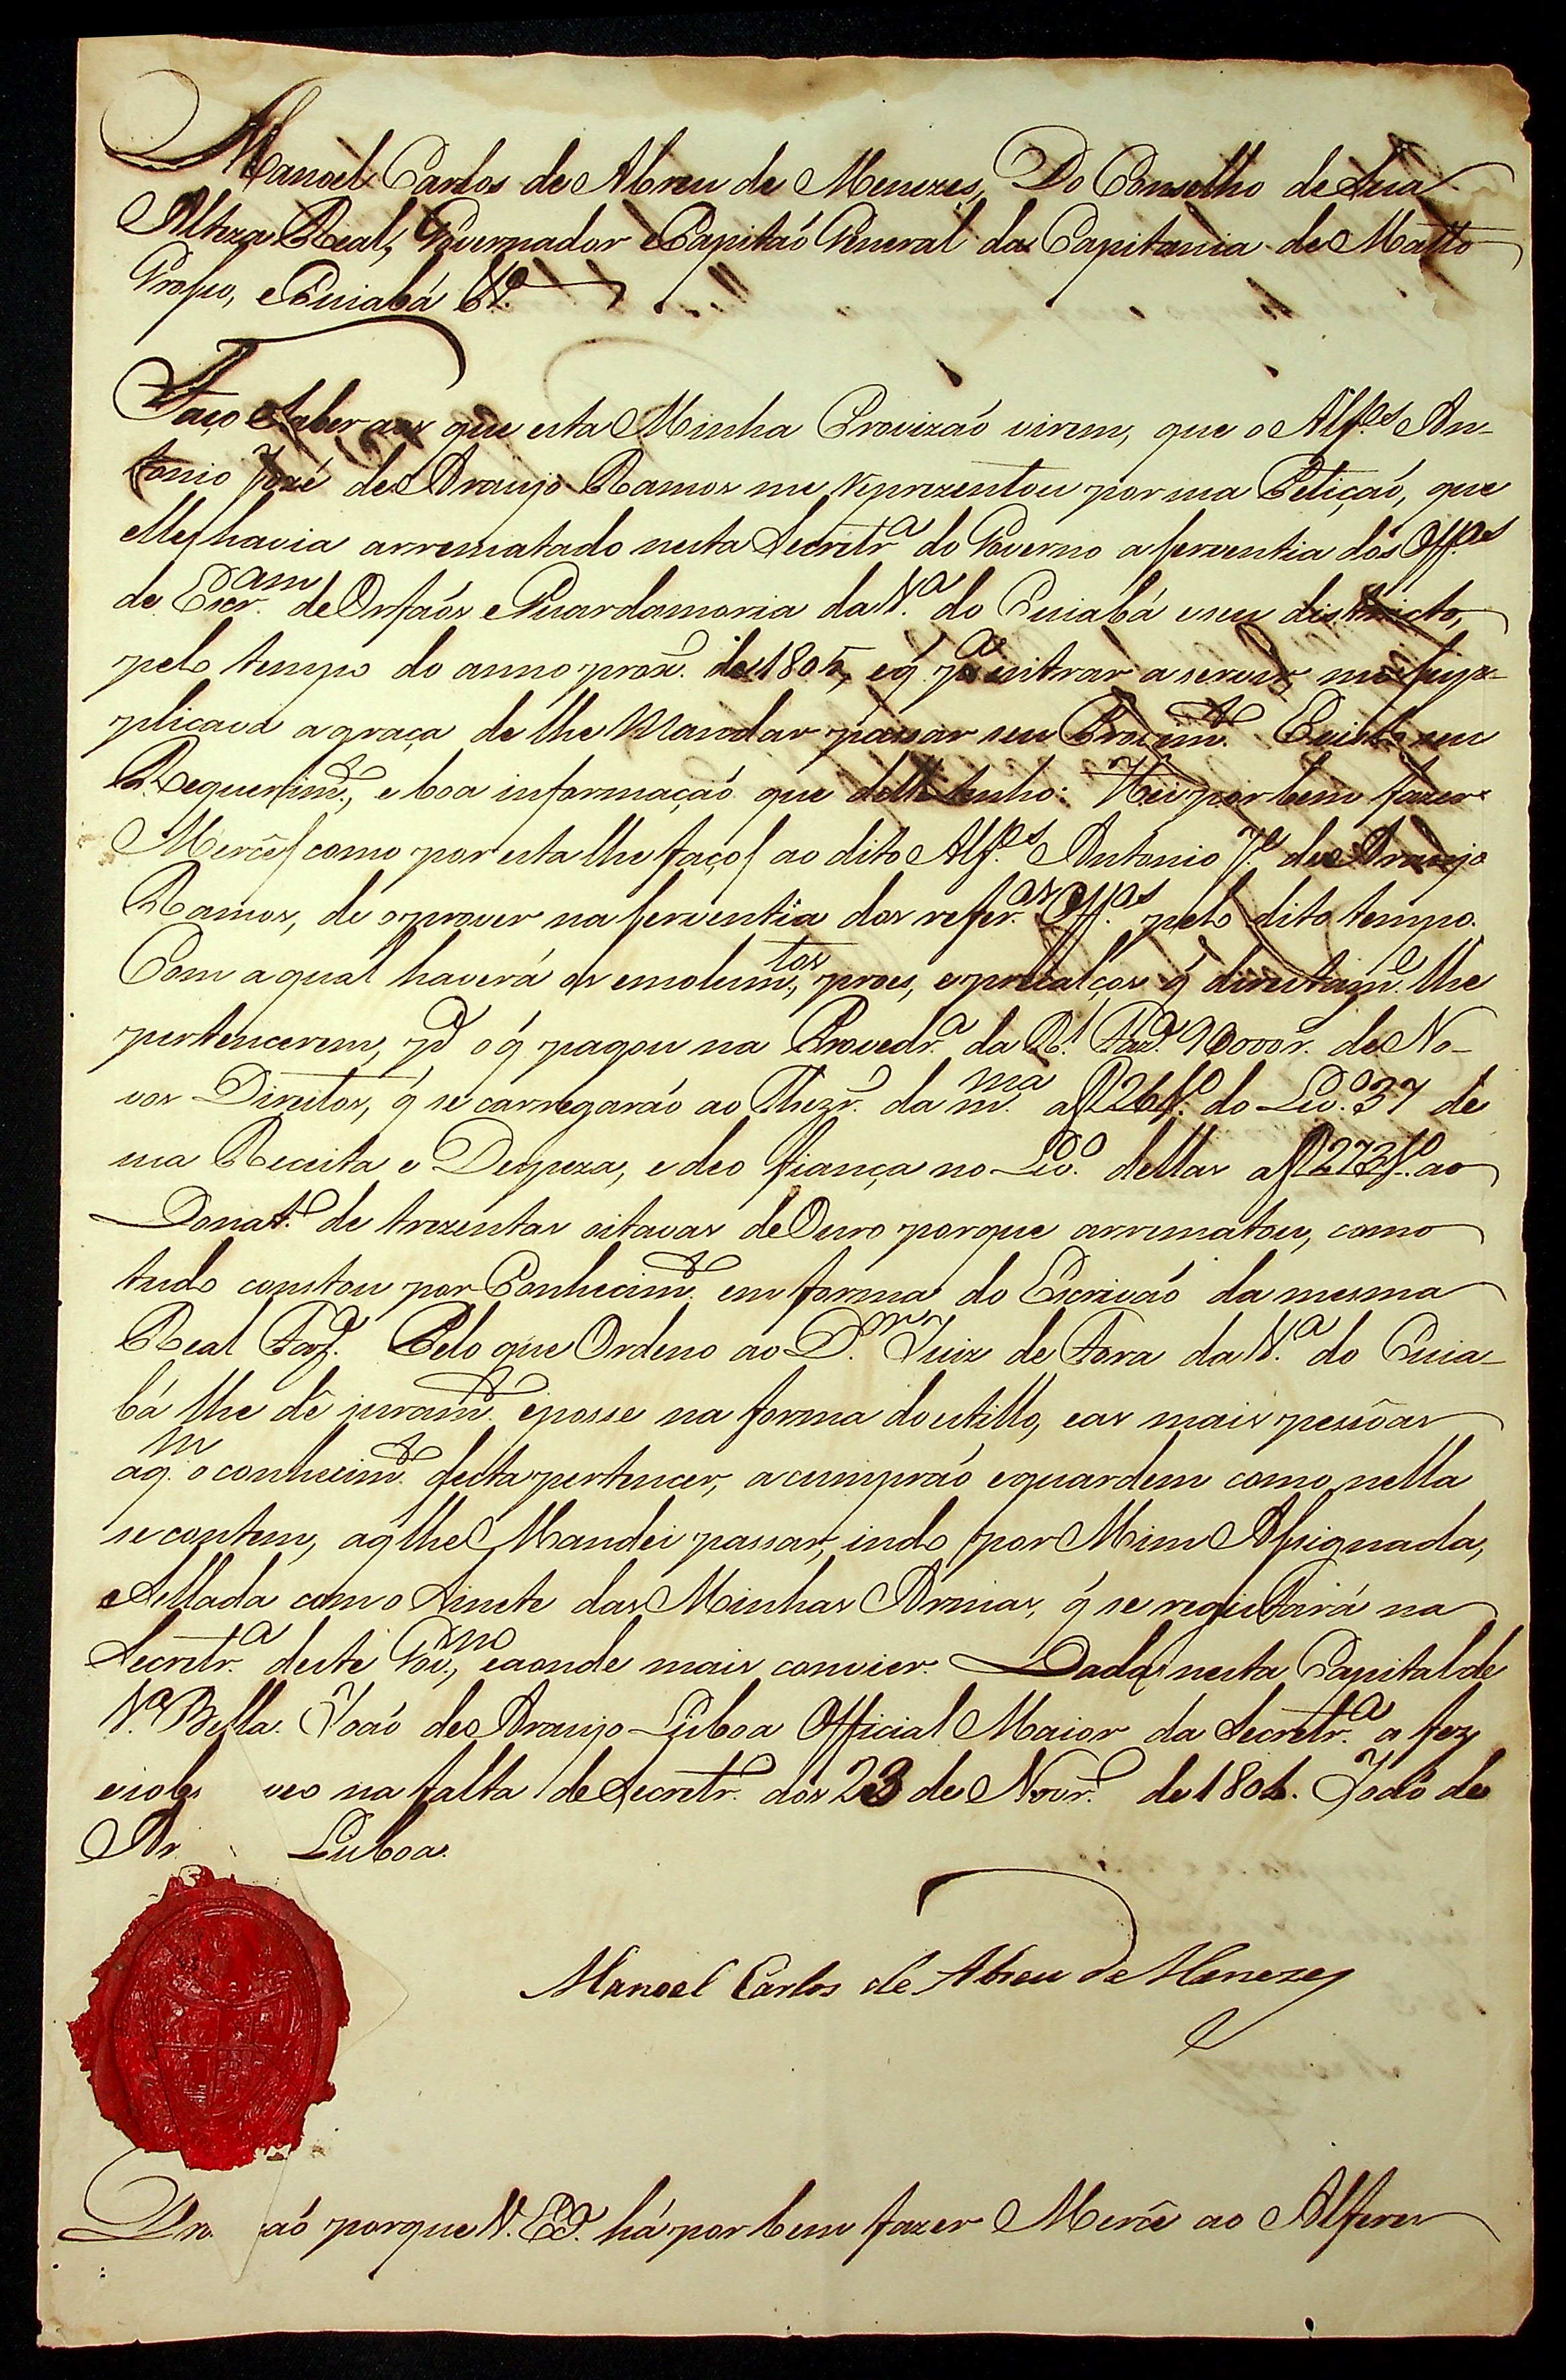 Manoel Carlos de Abreu de Menezes, Do Conselho de Sua
Alteza Real, Governador e Capitaõ General da Capitania de Matto
Groſso, e Cuiabá &ª.
Faço saber aos que esta Minha Provizaõ virem, que o Alf.es An-
tonio Jozé de Araujo Ramos me reprezentou por sua Petiçaõ, que
elle havia arrematado nesta Secretr.ª do Governo a serventia dos Off.os
de Escr.am de Orfaõs e Guardamoria da V.ª do Cuiabá e seu districto,
pelo tempo do anno prox.º de 1805, e q̃ p.ª entrar a servir, me sup-
plicava a graça de lhe Mandar passar seu Provim.to E visto seu
Requerim.to, e boa informaçaõ que delle tenho: Hei por bem fazer
Mercê / como por esta lhe faço / ao dito Alf.es Antonio J.e de Araujo
Ramos, de o prover na serventia dos refer.os Off.os pelo dito tempo.
Com a qual haverá os emolum.tos, proes, e precalços q̃ direitam.e lhe
pertencerem, pd.º q̃ pagou na Provedr.ª da R.l Faz.da 90000r. de No-
vos Direitos, q̃ se carregaraõ ao Thezr.º da m.ma af 126 f.º do Liv.º 37 de
sua Receita e Despeza, e deo fiança no Liv.º dellas af 273 f.º ao
Donat.º de trezentas oitavas de Ouro porque arrematou, como
tudo constou por Conhecim.to em forma do Escrivaõ da mesma
Real Faz.da Pelo que Ordeno ao D.or Juiz de Fora da V.ª do Cuia-
bá lhe dê juram.to e posse na forma do estillo, e as mais pessôas
aq.m o conhecim.to desta pertencer, a cumpraõ e guardem como nella
se contem, aq̃ lhe Mandei passar, indo por Mim Aſsignada,
e Sellada com o Sinete das Minhas Armas, q̃ se registará na
Secretr.ª deste Gov.rno, e aonde mais convier. Dada nesta Capital de
V.ª Bella. Joaõ de Araujo Lisboa Official Maior da Secretr.ª a fez
e sobs veo na falta de Secretr.º aos 23 de Novr.º de 1804. Joaõ de
Ar Lisboa.
Manoel Carlos de Abreu de Menezes
Pro aõ porque V. Ex.ª há por bem fazer Mercê ao Alferes